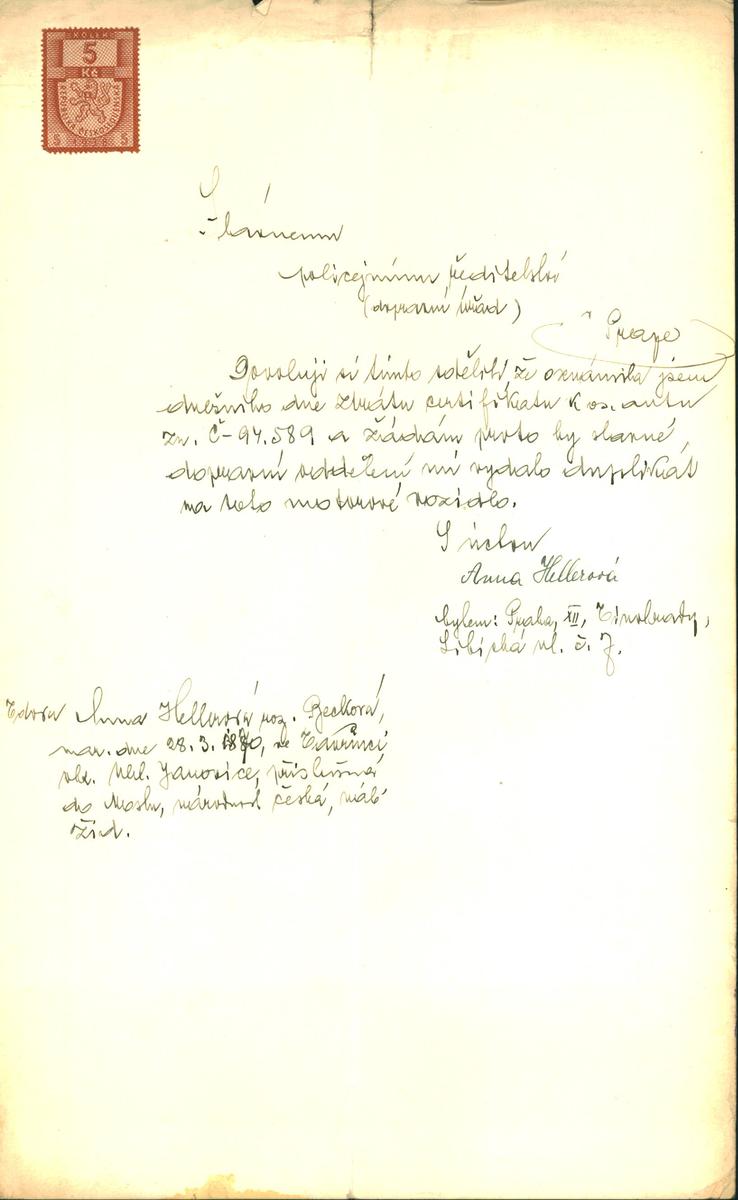 KOLEK
5
Kč
REPUBLIKA ČESKOSLOVENSKÁ
5 5
Slavnému
policejnímu ředitelství
(dopravní úřad)
v Praze
Dovoluji si tímto sděliti, že oznámila jsem
dnešního dne ztrátu certifikatu k os. autu
zn. Č-94.589 a žádám proto by slavné
dopravní oddělení mi vydalo duplikát
na toto motorové vozidlo.
S úctou
Anna Hellerová
bytem: Praha, XII, Vinohrady,
Libická ul. č. 7.
Vdova Anna Hellerová roz. Becková,
nar. dne 28. 3. 1870, ve
okr. Uhl. Janovice, příslušná
do Mostu, národnost česká, náb.
žid.